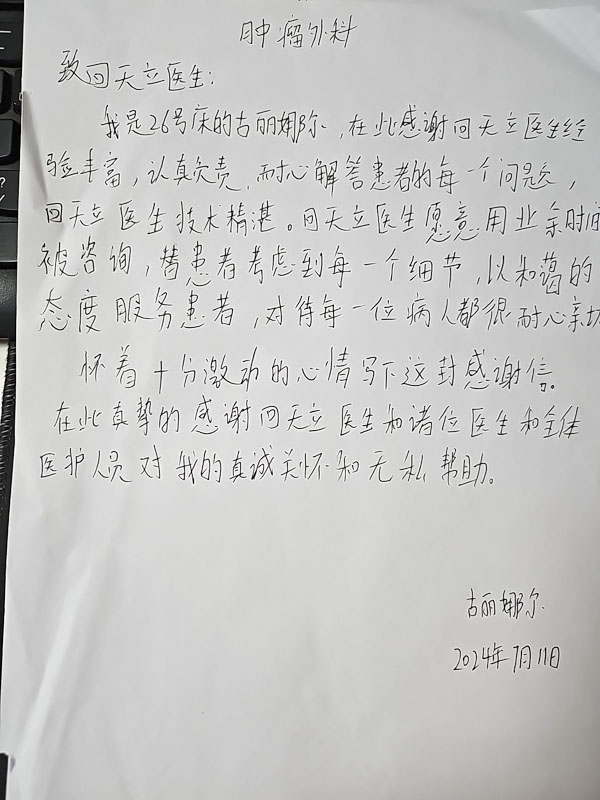 肿瘤外科
致回天立医生:
我是26号床的古丽娜尔,在此感谢回天立医生经
验丰富,认真负责,耐心解答患者的每一个问题,
回天立医生技术精湛。回天立医生愿意用业余时间
被咨询,替患者考虑到每一个细节,以和蔼的
态度服务患者,对待每一位病人都很耐心亲切
怀着十分激动的心情写下这封感谢信。
在此真挚的感谢回天立医生和诸位医生和全体
医护人员对我的真诚关怀和无私帮助。
古丽娜尔
2024年7月11日